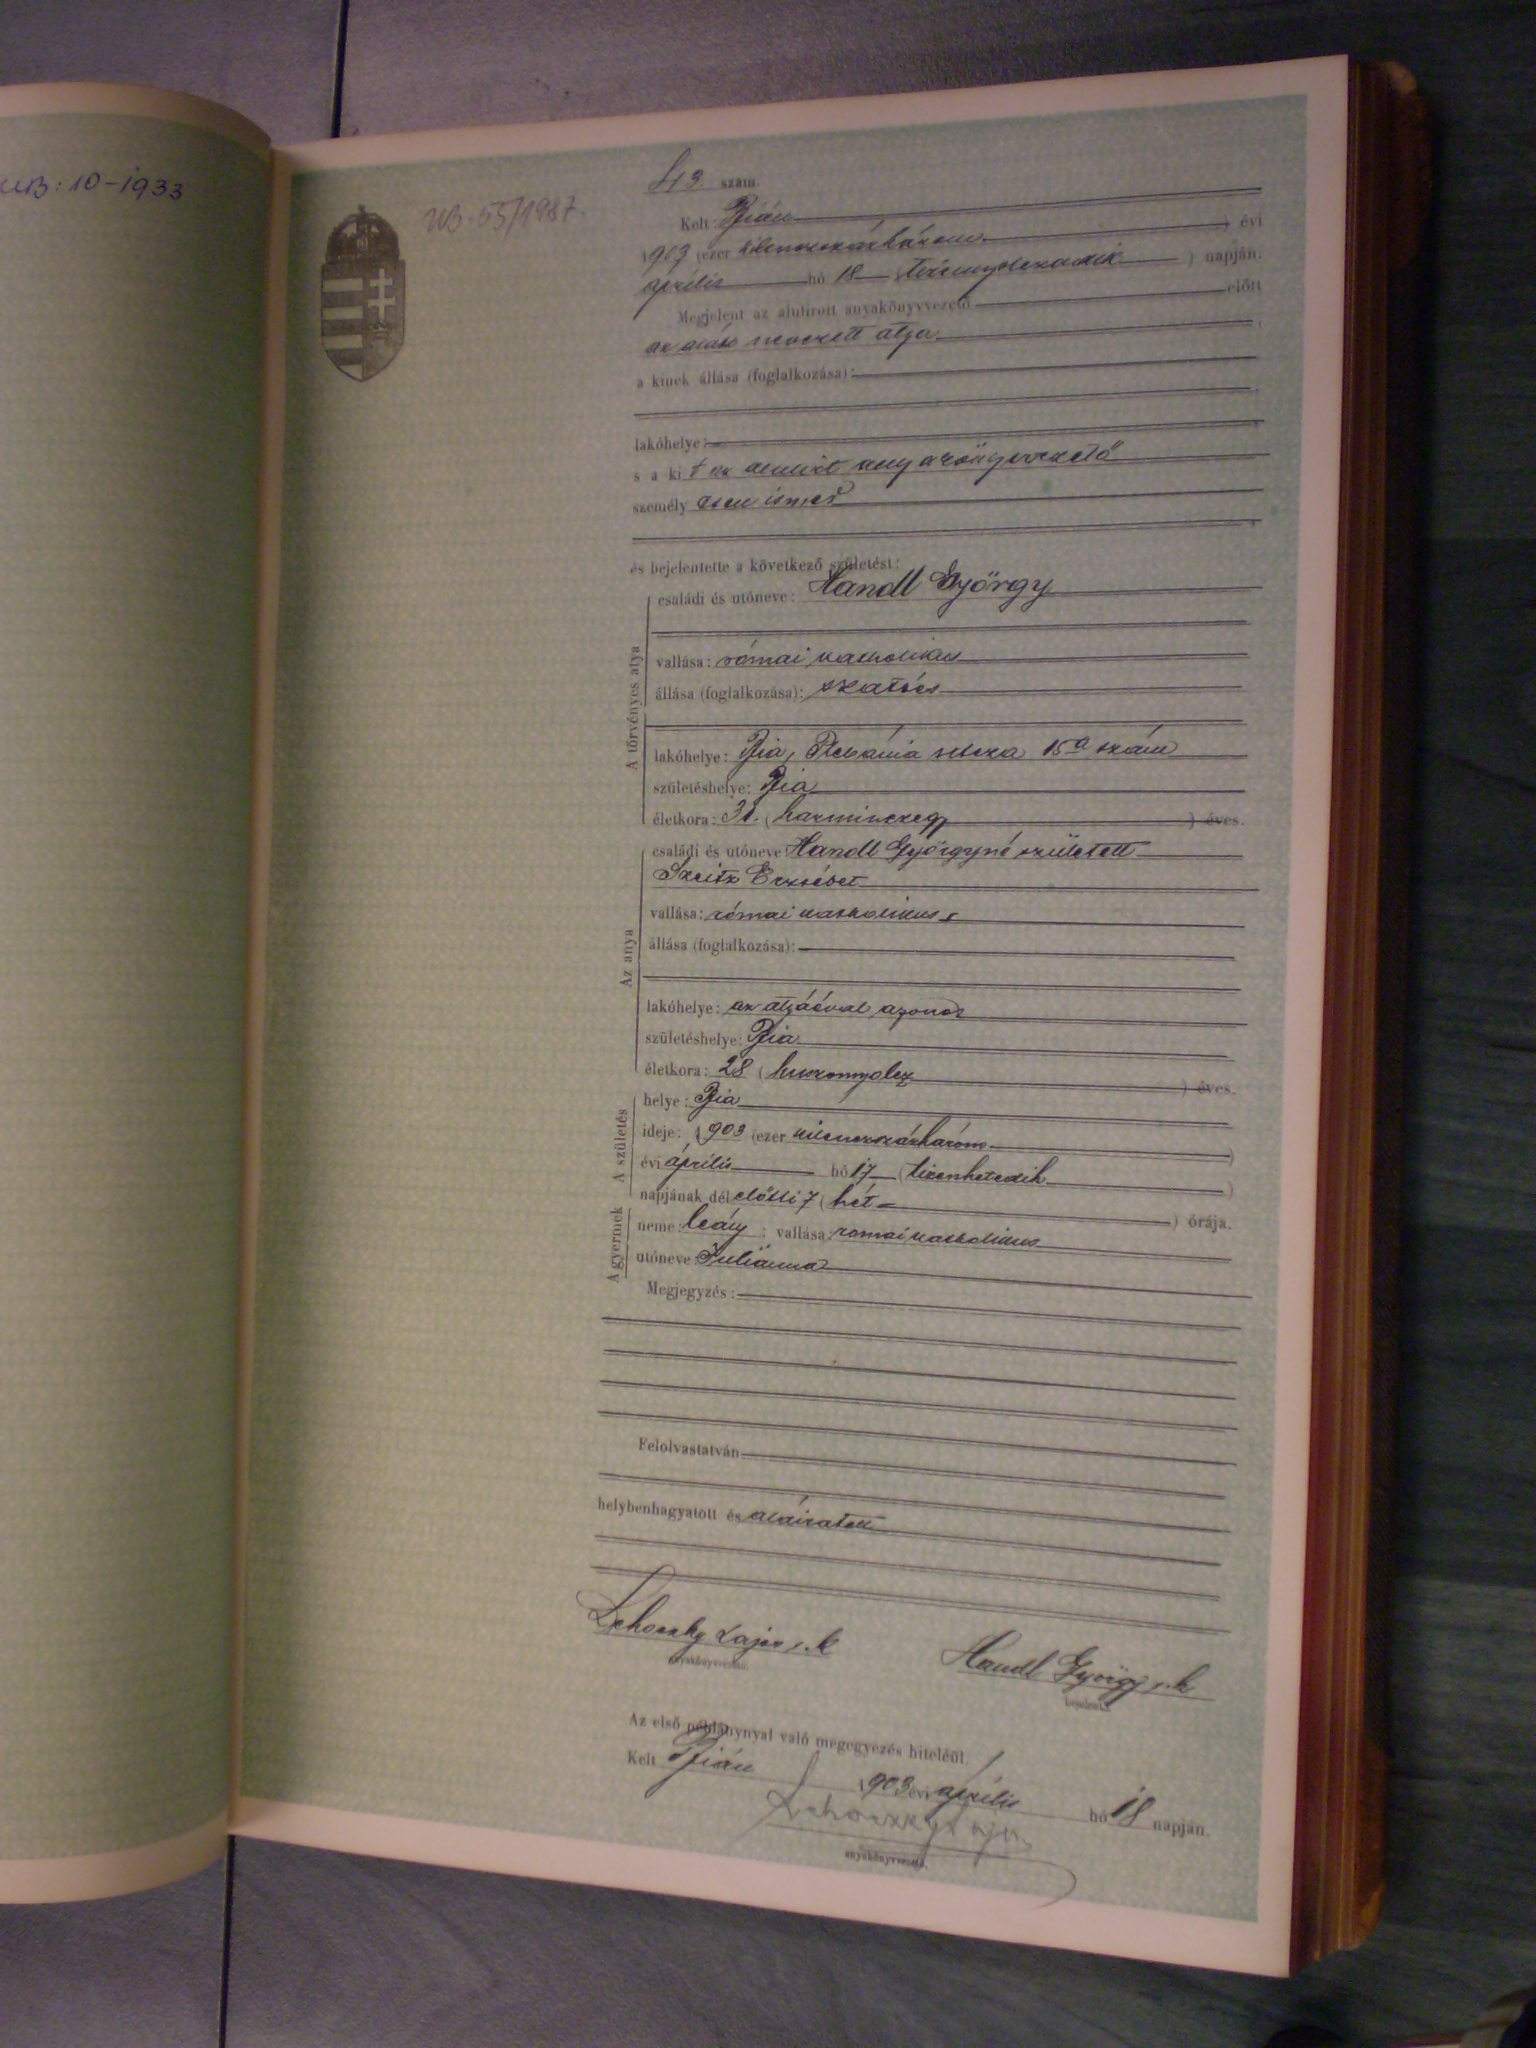 UB: 10-1933
UB-55/1987.
43. szám.
Kelt: Bián
1903 (ezer kilenczszázhárom ) évi
április hó 18 (tizennyolczadik ) napján.
Megjelent az alulirott anyakönyvvezető előtt
az alább nevezett atya
a kinek állása (foglalkozása):
lakóhelye:
s a kit az alulirt anyakönyvvezető
személyesen ismer
és bejelentette a következő születést:
A törvényes atya
családi és utóneve: Handl György
vallása: római katholikus
állása (foglalkozása): szatócs
lakóhelye: Bia, Plebánia utcza 15a szám
születéshelye: Bia
életkora: 31. (harminczegy ) éves.
Az anya
családi és utóneve Handl Györgyné született
Szeitz Erzsébet
vallása: római katholikus
állása (foglalkozása):
lakóhelye: az atyáéval azonos
születéshelye: Bia
életkora: 28 (huszonnyolcz ) éves.
A születés
helye: Bia
ideje: 1903 (ezer kilenczszázhárom )
évi április hó 17 (tizenhetedik )
napjának délelőtti 7 (hét ) órája.
A gyermek
neme: leány ; vallása: római katholikus
utóneve: Juliánna
Megjegyzés:
Felolvastatván
helybenhagyatott és aláiratott
Lehoczky Lajos s. k
anyakönyvvezető.
Handl György s. k
bejelentő.
Az első példánynyal való megegyezés hiteléül.
Kelt Bián 1903 évi április hó 18 napján.
Lehoczky Lajos
anyakönyvvezető.